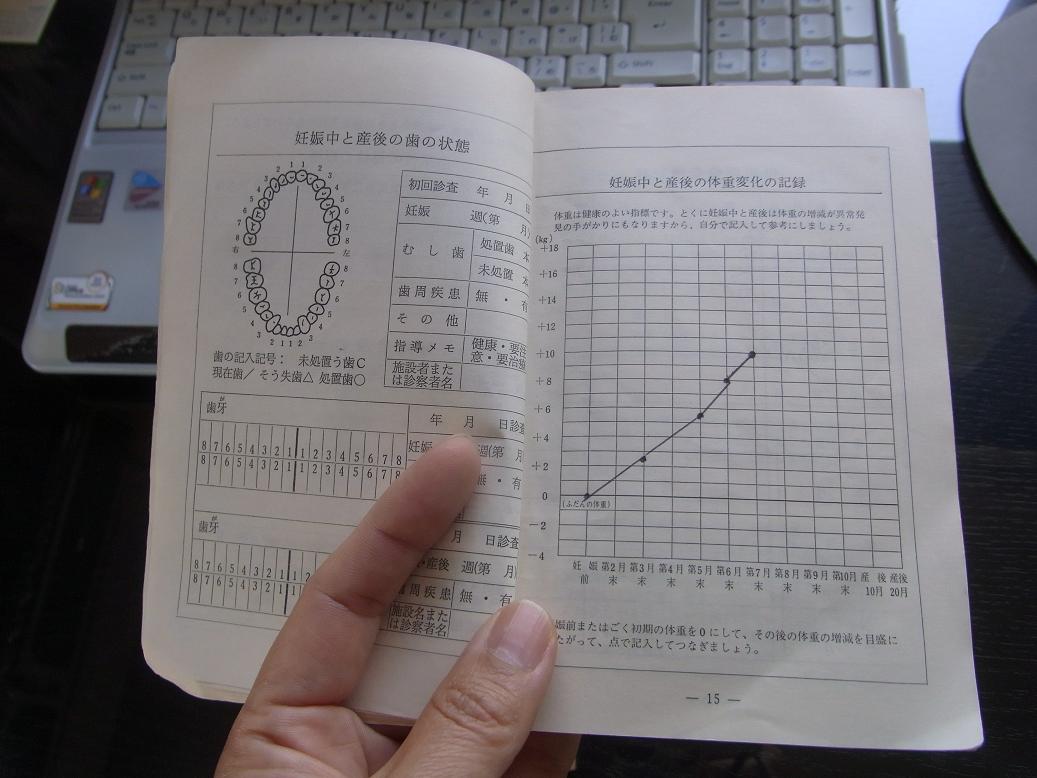 妊娠中と産後の歯の状態
1 1
2 2
3 3
4 4
5 5
6 6
7 7
8 8
右 左
8 8
7 7
6 6
5 5
4 4
3 3
2 1 1 2
歯の記入記号： 未処置う歯C
現在歯/ そう失歯△ 処置歯○
初回診査 年 月 日
妊娠 週(第 月)
むし歯 処置歯 本
未処置 本
歯周疾患 無・有
その他
指導メモ 健康・要注
意・要治療
施設者また
は診察者名
歯牙
8 7 6 5 4 3 2 1 1 2 3 4 5 6 7 8
8 7 6 5 4 3 2 1 1 2 3 4 5 6 7 8
年 月 日診査
妊娠 週(第 月
無・有
歯牙
8 7 6 5 4 3 2 1 1
8 7 6 5 4 3 2 1 1
月 日診査
産後 週(第 月)
周疾患 無・有
施設名また
は診察者名
妊娠中と産後の体重変化の記録
体重は健康のよい指標です。とくに妊娠中と産後は体重の増減が異常発
見の手がかりにもなりますから、自分で記入して参考にしましょう。
(kg)
+18
+16
+14
+12
+10
+8
+6
+4
+2
0
(ふだんの体重)
−2
−4
妊娠前 第2月末 第3月末 第4月末 第5月末 第6月末 第7月末 第8月末 第9月末 第10月末 産後10月 産後20月
娠前またはごく初期の体重を0にして、その後の体重の増減を目盛に
たがって、点で記入してつなぎましょう。
— 15 —
Enter
Shift
Enter